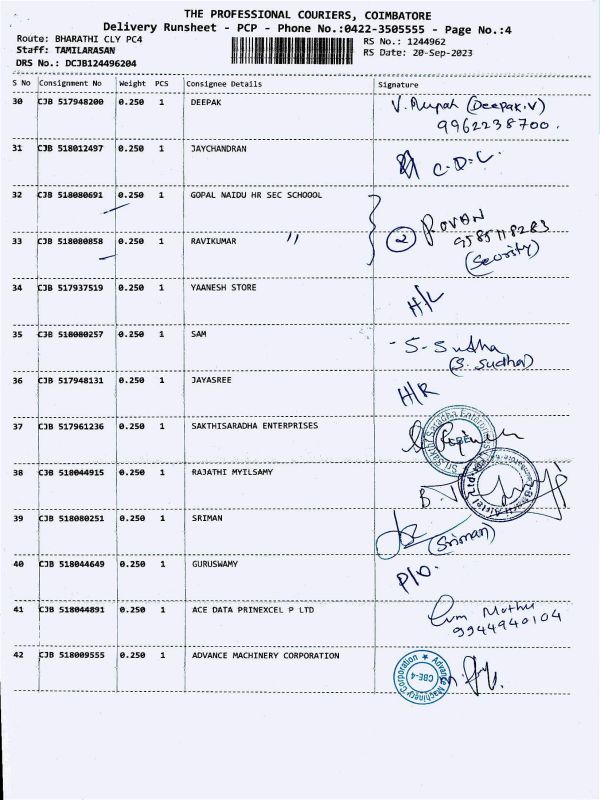 THE PROFESSIONAL COURIERS, COIMBATORE
Delivery Runsheet - PCP - Phone No.:0422-3505555 - Page No.:4
Route: BHARATHI CLY PC4 RS No.: 1244962
Staff: TAMILARASAN RS Date: 20-Sep-2023
DRS No.: DCJB124496204
S No Consignment No Weight PCS Consignee Details Signature
30 CJB 517948200 0.250 1 DEEPAK (Deepak.V)
9962238700.
31 CJB 518012497 0.250 1 JAYCHANDRAN C.D.C.
32 CJB 518080691 0.250 1 GOPAL NAIDU HR SEC SCHOOOL
2 ROVAN
9585118283
33 CJB 518080858 0.250 1 RAVIKUMAR "
(Security)
34 CJB 517937519 0.250 1 YAANESH STORE H/L
35 CJB 518080257 0.250 1 SAM - S-Sudha
(S. Sudha)
36 CJB 517948131 0.250 1 JAYASREE H/R
37 CJB 517961236 0.250 1 SAKTHISARADHA ENTERPRISES
Sri Sakthi Saradha Enterprises
38 CJB 518044915 0.250 1 RAJATHI MYILSAMY
Bharti Airtel Ltd
39 CJB 518080251 0.250 1 SRIMAN
(Sriman)
40 CJB 518044649 0.250 1 GURUSWAMY P/O.
41 CJB 518044891 0.250 1 ACE DATA PRINEXCEL P LTD
Muthu
9944940104
42 CJB 518009555 0.250 1 ADVANCE MACHINERY CORPORATION
Advance Machinery Corporation
CBE-4